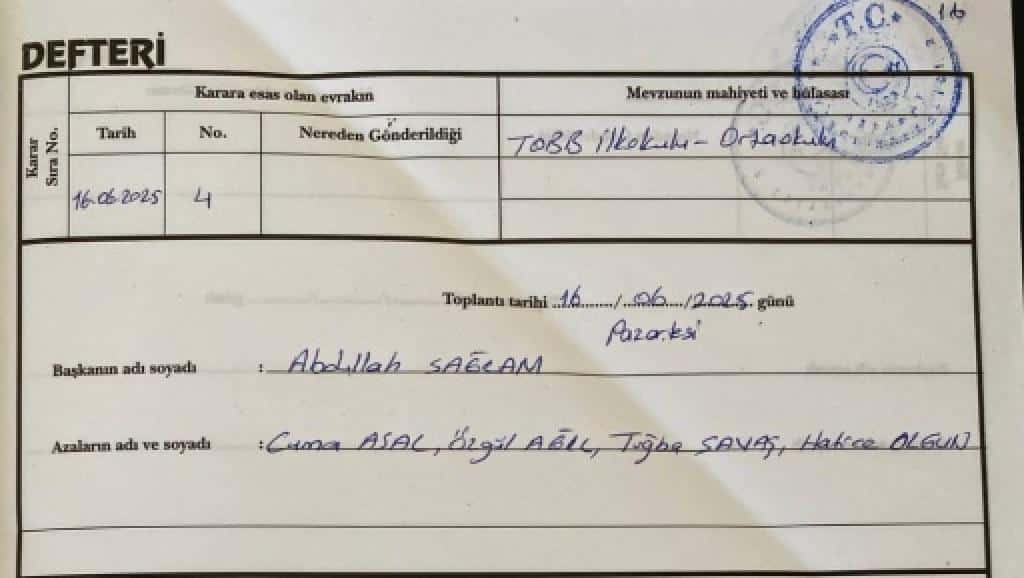 16
T.C.
DEFTERİ
Karar Sıra No.
Karara esas olan evrakın
Mevzunun mahiyeti ve hülasası
Tarih No. Nereden Gönderildiği
TOBB İlkokulu - Ortaokulu
16.06.2025 4
Toplantı tarihi 16/06/2025 günü
Pazartesi
Başkanın adı soyadı : Abdullah SAĞLAM
Azaların adı ve soyadı : Cuma ASAL, Özgül AĞIL, Tuğba SAVAŞ, Hatice OLGUN